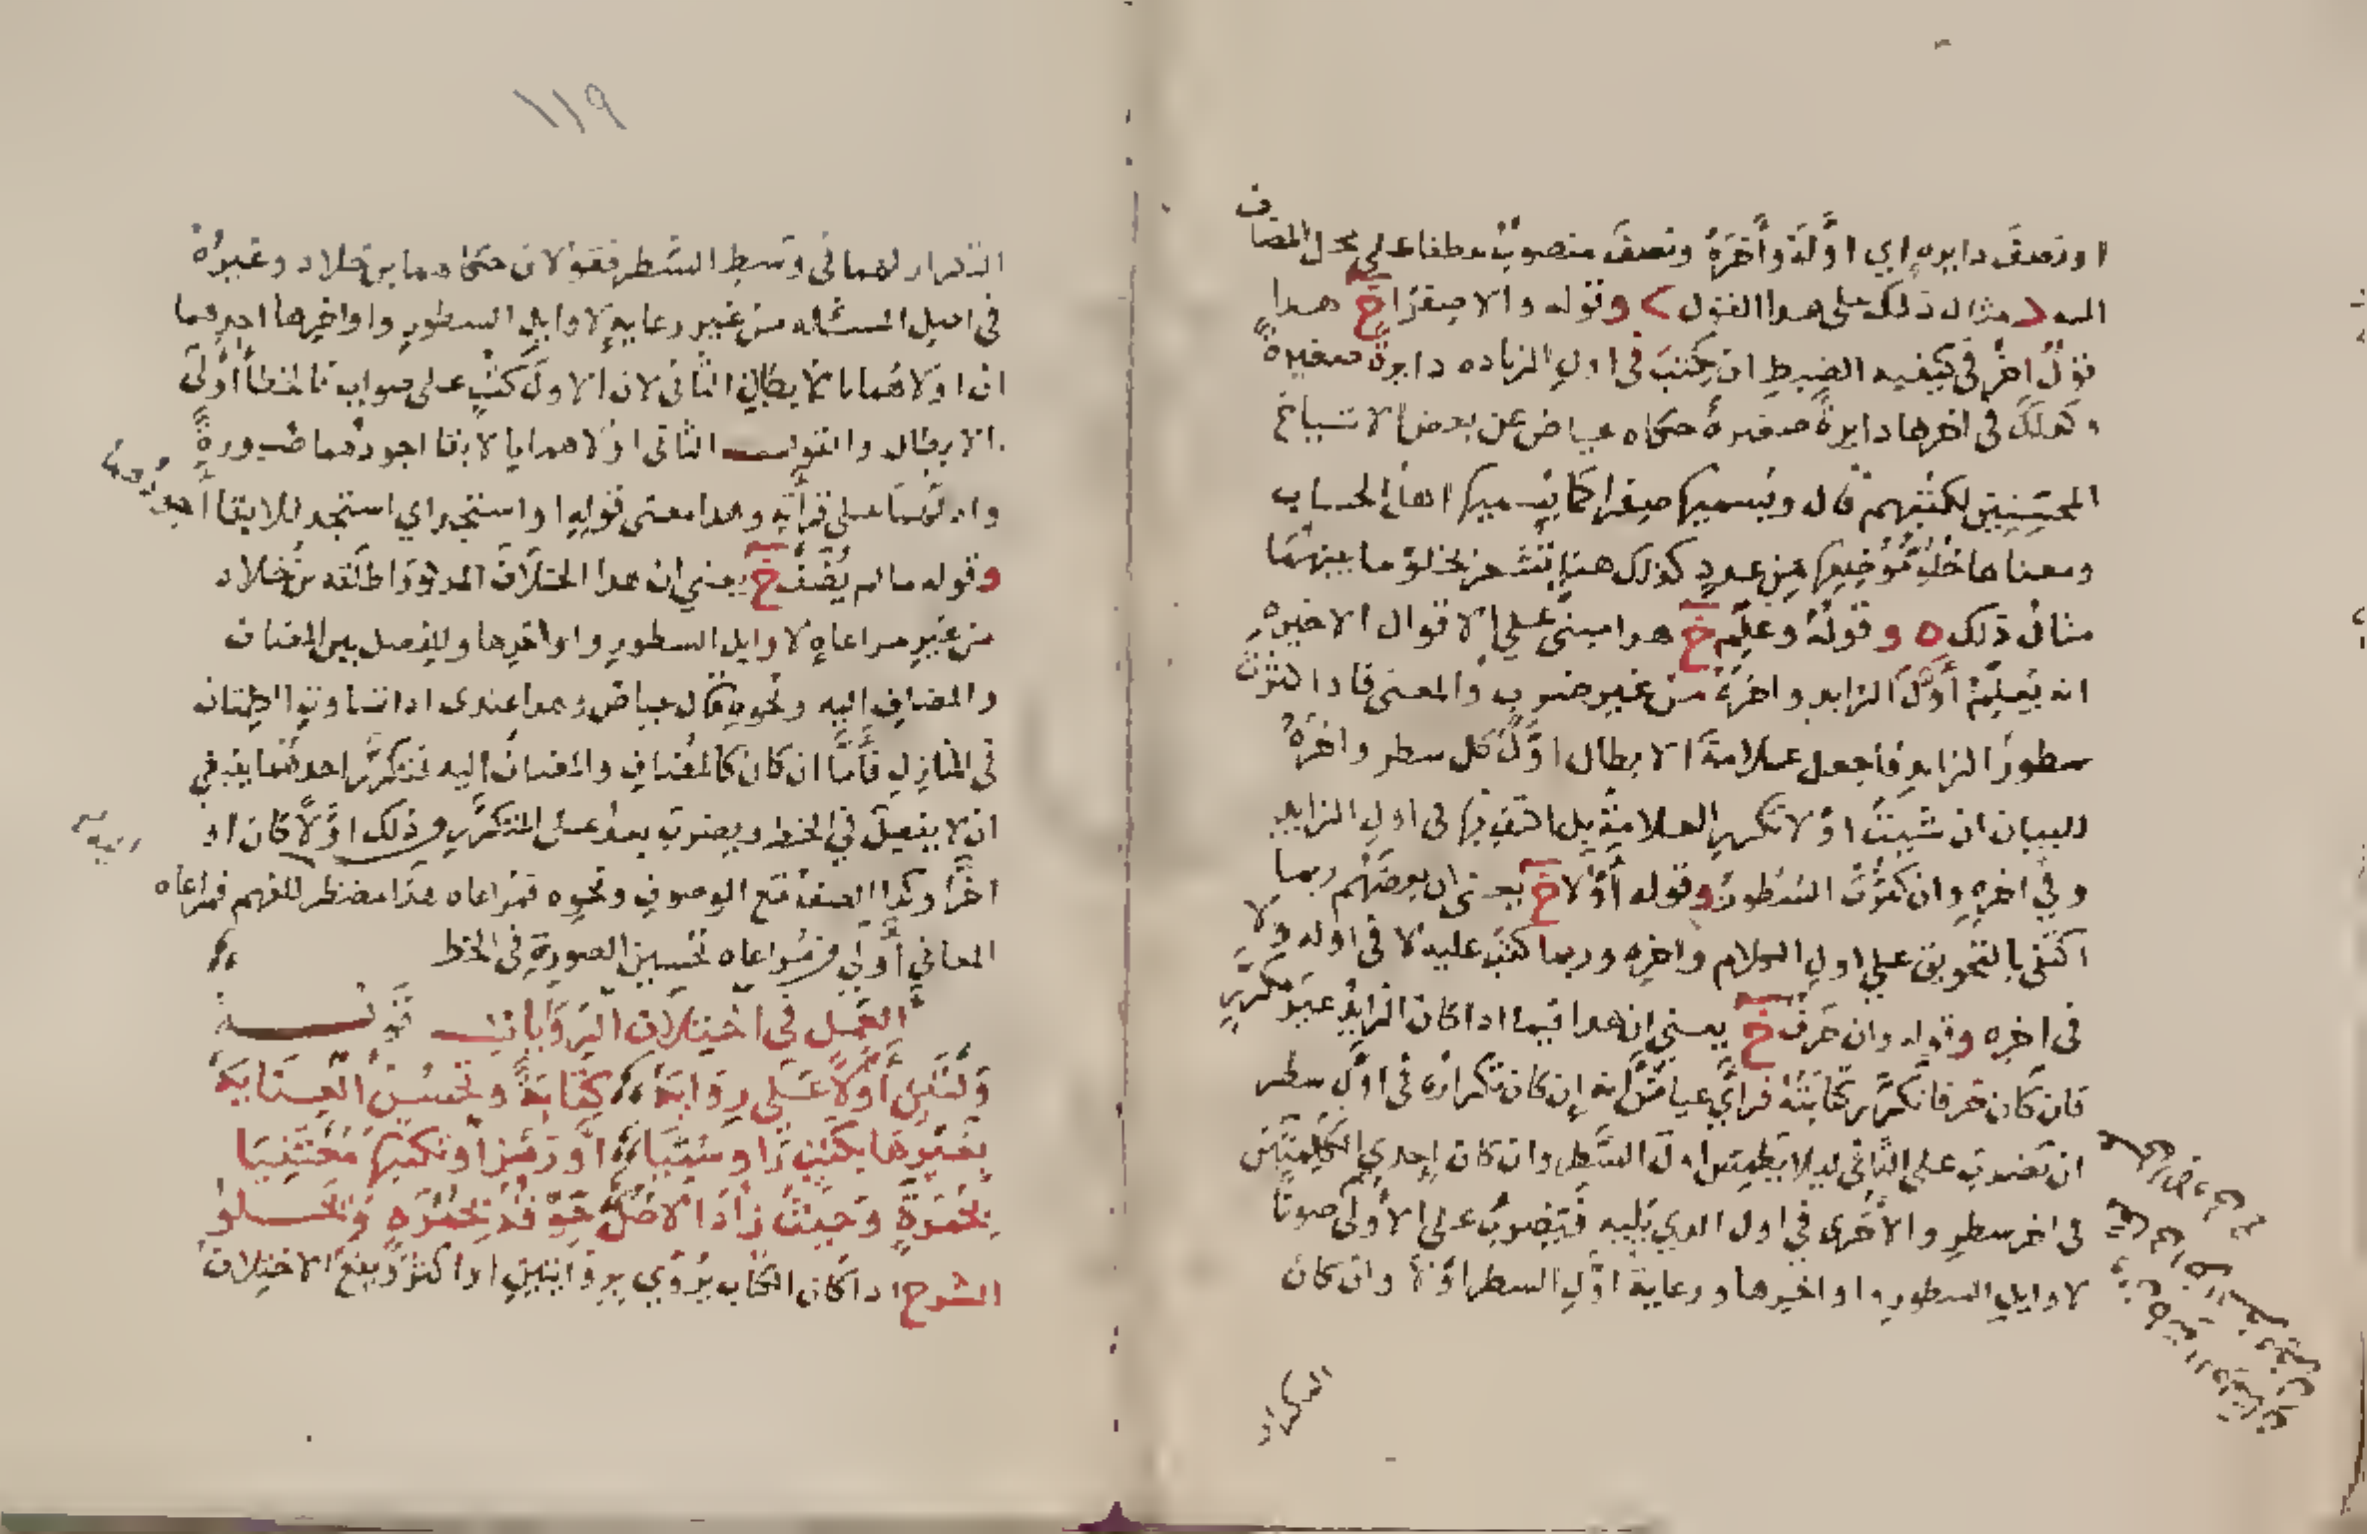 او نصف دايره اي اوله واخره ونصف منصوب عطفا على محل المضاف
اليه > مثال ذلك على هذا القول < وقوله والا صفرا خ هذا
قول اخر في كيفيه الضبط ان يكتب في اول الزياده دايرة صغيرة
وكذلك في اخرها دايرة صغيرة حكاه عياض عن بعض الاشياخ
المحسنين لكتبهم قال ويسميها صفرا كما يسميها اهل الحساب
ومعناها خلو موضعها من عدد كذلك هنا تشعر بخلو ما بينهما
مثال ذلك ه وقوله وعلم خ هدا مبنى على الاقوال الاخيره
انه يعلم أول الزايد واخره من غير ضرب والمعنى فاذا كثرت
سطور الزايد فاجعل علامة الابطال اول كل سطر واخره
للبيان ان شيت او لا تكرر العلامة بل اكتف بها في اول الزايد
وفي اخره وان كثرت السطور وقوله أولا خ يعنى ان بعضهم ربما
اكتفى بالتحويق على اول الكلام واخره وربما كتب عليه لا في اوله والا
في اخره وقوله وان حرف خ يعنى ان هدا فيما اذا كان الزايد غير مكرر
فان كان حرفا تكرر كتابته فراي عياض انه إن كان تكراره في اول سطر
ان تضرب على الثاني ليلا يطمس اول السطر وان كان إحدى الكلمتين
في اخر سطر والاخرى في اول الدي يليه فتضرب على الاولى صونا
لاوايل السطور واواخرها ورعاية اول السطر اولى وان كان
التكرار
١١٩
التكرار لهما في وسط السطر فقولان حكاهما بن خلاد وغيره
في اصل المسئله من غير رعاية لاوايل السطور واواخرها احدهما
ان اولاهما بالابطال الثاني لان الاول كتب على صواب فالخطأ أولى
بالابطال والقول الثاني اولاهما بالابقا اجودهما صورة
وادلهما على قرأته وهدا معنى قوله او استجد اي استجد للابقا أجودهما
وقوله ما لم يضف خ يعني ان هدا الخلاف المدكور اطلقه بن خلاد
من غير مراعاة لاوايل السطور واواخرها وللفصل بين المضاف
والمضاف اليه ونحوه قال عياض وهدا عندى اذا تساوت الكلمتان
في المنازل فأما ان كان كالمضاف والمضاف إليه فتكرر احدهما ينبغي
ان لا يفصل في الخط ويضرب بعد على المتكرر وذلك اولا كان او
اخرا وكدا الصفة مع الموصوف ونحوه فمراعاه هذا مضطر للفهم فمراعاه
المعاني أولى من مراعاه تحسين الصورة في الخط
العمل في اختلاف الروايات قوله
وليبن أولا على رواية كتابه ويحسن العنايه
بغيرها بكتب راو سميا او رمزا او يكتبها معتنيا
بحمرة وحيث زاد الاصل حوقه بحمره ويجلو
الشرح ادا كان الكتاب يروى بروايتين او اكثر ويقع الاختلاف